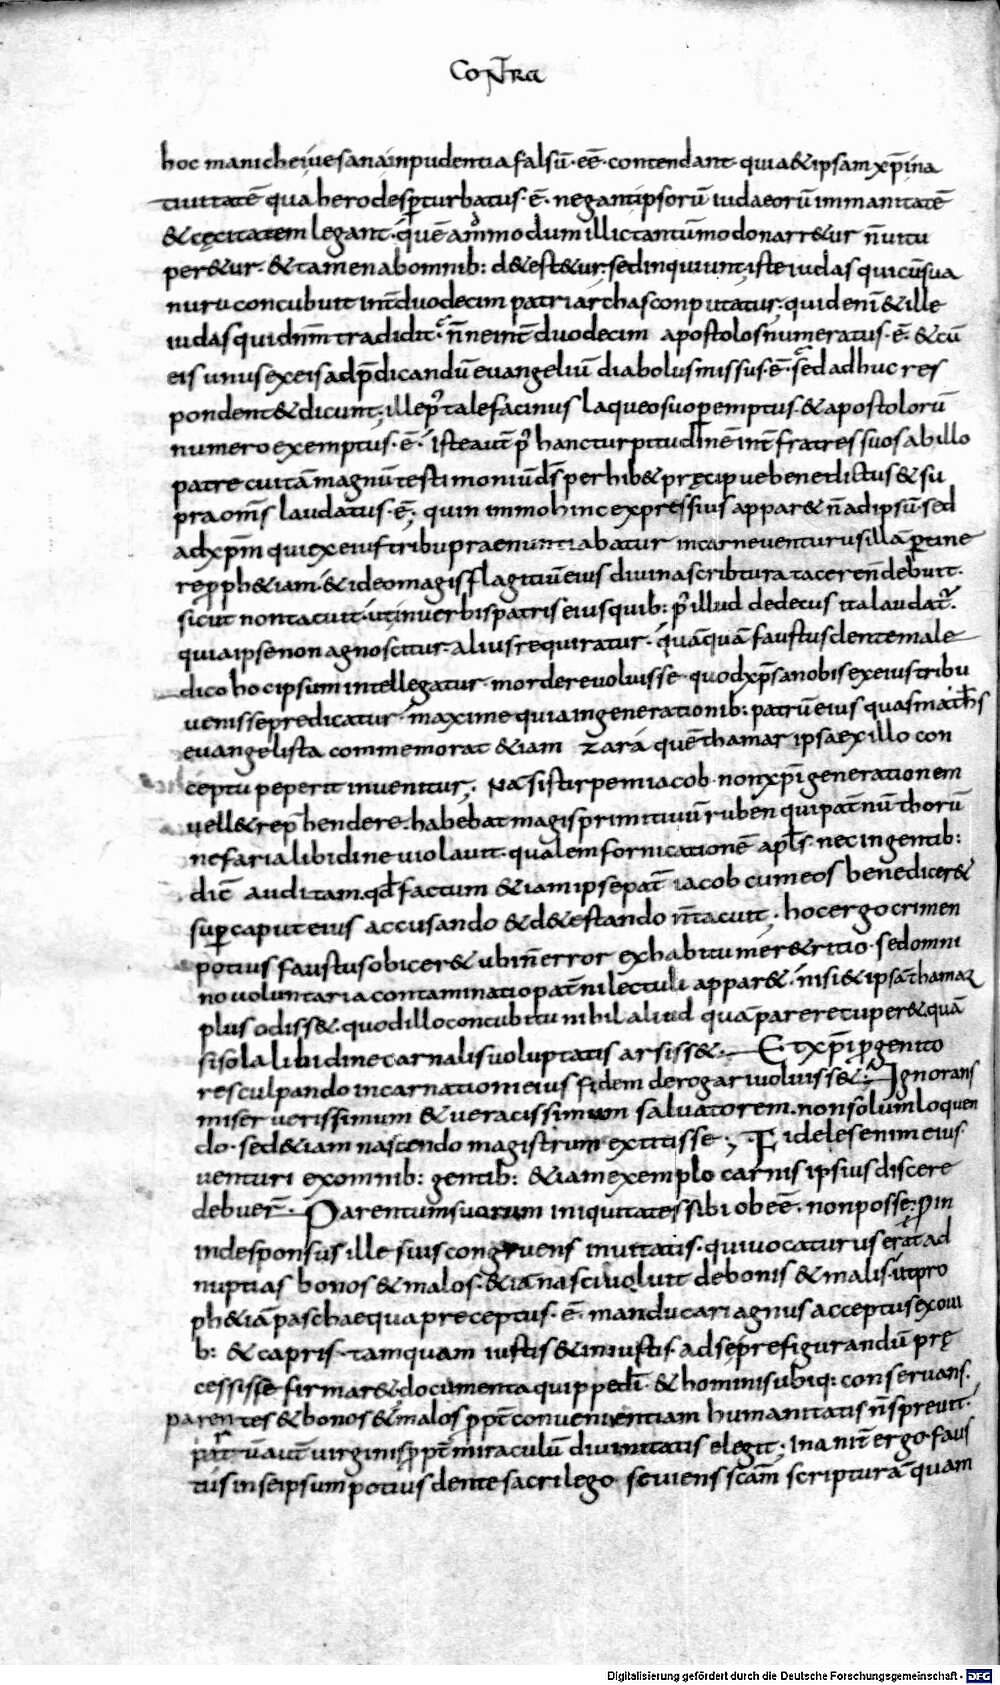 CONTRA
hoc manichei uesana inpudentia falsū · eē · contendant · quia & ipsam xp̄i na
tiuitatē qua herodes ꝑturbatus · ē · negant ipsorū iudaeorū immanitatē
& cęcitatem legant · quē ammodum illic tantūmodo narr&ur n̄ uitu
per&ur · & tamen ab omnib: d&est&ur: sed inquiunt iste iudas qui cū sua
nuru concubuit int̄ duodecim patriarchas conputatur; quid enī & ille
iudas qui dn̄m tradidit · n̄ne int̄ duodecim apostolos numeratus · ē · & cū
eis unus ex eis ad p̄dicandū euangeliū diabolus missus · ē · sed adhuc res
pondent & dicunt; ille p̓ tale facinus laqueo suo ꝑemptus · & apostolorū
numero exemptus · ē · iste aut̄ p̓ hanc turpitudinē int̄ fratres suos ab illo
patre cui tā magnū testimoniū ds̄ perhib& pręcipue benedictus & su
pra om̄s laudatus · ē; quin immo hinc expressius appar& n̄ ad ipsū · sed
ad xp̄m qui ex eius tribu praenuntiabatur in carne uenturus illā ꝑtine
re ꝓph&iam · & ideo magis flagitiū eius diuina scribtura tacere n̄ debuit ·
sicut non tacuit · ut in uerbis patris eius quib: p̓ illud dedecus ita laudat̓ ·
quia ipse non agnoscitur · alius requiratur · quāquā faustus dente male
dico hoc ipsum intellegatur mordere uoluisse quod xp̄s a nobis ex eius tribu
uenisse predicatur · maxime quia in generationib: patrū eius quas matheus
euangelista commemorat &iam zara quē thamar ipsa ex illo con
ceptu peperit inuenitur; Nā si stirpem iacob · non xp̄i generationem
uell& rep̄hendere · habebat magis primitiuū ruben qui pat̄nū thorū
nefaria libidine uiolauit · qualem fornicationē apl̄s · nec in gentib:
dic̄ auditam · qd̄ factum &iam ipse pat̄ iacob cum eos benedicer&
suꝑ caput eius accusando & d&estando n̄ tacuit; hoc ergo crimen
potius faustus obicer& ubi n̄ error ex habitu mer&ricio · sed omni
no uoluntaria contaminatio pat̄ni lectuli appar& · nisi & ipsā thamar
plus odiss& · quod illo concubitu nihil aliud quā parere cuper& quā
si sola libidine carnalis uoluptatis arsiss& · Et xp̄i ꝓgenito
res culpando incarnationi eius fidem derogari uoluiss& · Ignorans
miser uerissimum & ueracissimum saluatorem · non solum loquen
do · sed &iam nascendo magistrum extitisse; Fideles enim eius
uenturi ex omnib: gentib: &iam exemplo carnis ipsius discere
debuer̄ · Parentum suorum iniquitates sibi obeē · non posse · Proin
inde sponsus ille suis congruens inuitatis · qui uocaturus erat ad
nuptias bonos & malos · &iā nasci uoluit de bonis & malis · ut pro
ph&iā paschae qua preceptus · ē · manducari agnus acceptus ex oui
b: & capris · tamquam iustis & iniustis ad se prefigurandū prę
cessisse firmar& · documenta quippe di & hominis ubiq: conseruans ·
parentes & bonos & malos ꝓpt̄ conuenientiam humanitatis n̄ spreuit ·
part̄ū aut̄ uirginis ꝓpt̄ miraculū diuinitatis elegit; Inanit̄ ergo faus
tus in se ipsum potius dente sacrilego seuiens scām scripturā quam